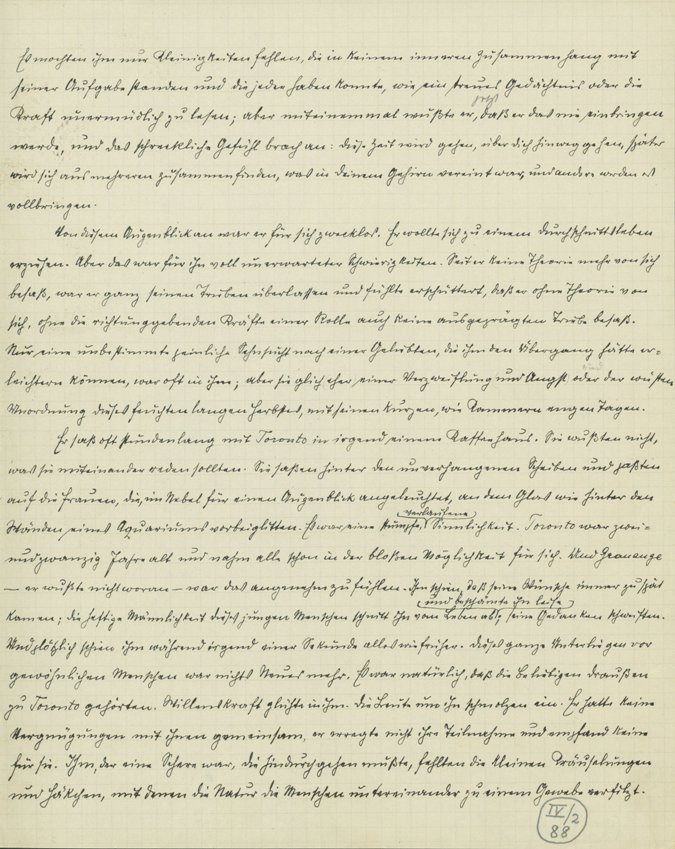 Es mochten ihm nur Kleinigkeiten fehlen, die in keinem inneren Zusammenhang mit
seiner Aufgabe standen und die jeder haben konnte, wie ein treues Gedächtnis oder die
jetzt
Kraft unermüdlich zu lesen; aber mit einemmal wußte er, daß er das nie einbringen
werde, und das schreckliche Gefühl brach an: diese Zeit wird gehen, über dich hinweg gehen, später
wird sich aus mehreren zusammenfinden, was in deinem Gehirn vereint war, und andere werden es
vollbringen.
Von diesem Augenblick an war er für sich zwecklos. Er wollte sich zu einem Durchschnittsleben
erziehen. Aber das war für ihn voll unerwarteter Schwierigkeiten. Seit er keine Theorie mehr von sich
besaß, war er ganz seinen Trieben überlassen und fühlte erschüttert, daß er ohne Theorie von
sich, ohne die richtunggebenden Kräfte einer Rolle auch keine ausgeprägten Triebe besaß.
Nur eine unbestimmte peinliche Sehnsucht nach einer Geliebten, die ihm den Übergang hätte er-
leichtern können, war oft in ihm; aber sie glich eher einer Verzweiflung und Angst oder der wüsten
Unordnung dieses feuchten langen Herbstes, mit seinen kurzen, wie Kammern engen Tagen.
Er saß oft stundenlang mit Toronto in irgend einem Kaffeehaus. Sie wußten nicht,
was sie miteinander reden sollten. Sie saßen hinter den unverhangenen Scheiben und paßten
auf die Frauen, die, im Nebel für einen Augenblick angeleuchtet, an dem Glas wie hinter den
verlaufene
Wänden eines Aquariums vorbeiglitten. Es war eine stumpfe, Sinnlichkeit. Toronto war zwei-
undzwanzig Jahre alt und nahm alle schon in der bloßen Möglichkeit für sich. Und
– er wußte nicht woran – war das angenehm zu fühlen. Ihm schien, daß seine Wünsche immer zu spät
und beschämte ihn leise
kamen; die heftige Männlichkeit dieses jungen Menschen schnitt ihn vom Leben ab, seine Gedanken schweiften.
Und plötzlich schien ihm während irgend einer Sekunde alles wie früher. Dieses ganze Unterliegen vor
gewöhnlichen Menschen war nichts Neues mehr. Es war natürlich, daß die Beliebigen draußen
zu Toronto gehörten. Willenskraft glühte in ihm. Die Leute um ihn schmolzen ein. Er hatte keine
Vergnügungen mit ihnen gemeinsam, er erregte nicht ihre Teilnahme und empfand keine
für sie. Ihm, der eine war, die hindurchgehen mußte, fehlten die kleinen Kräuselungen
und Häkchen, mit denen die Natur die Menschen untereinander zu einem Gewebe verfilzt.
IV/2
88